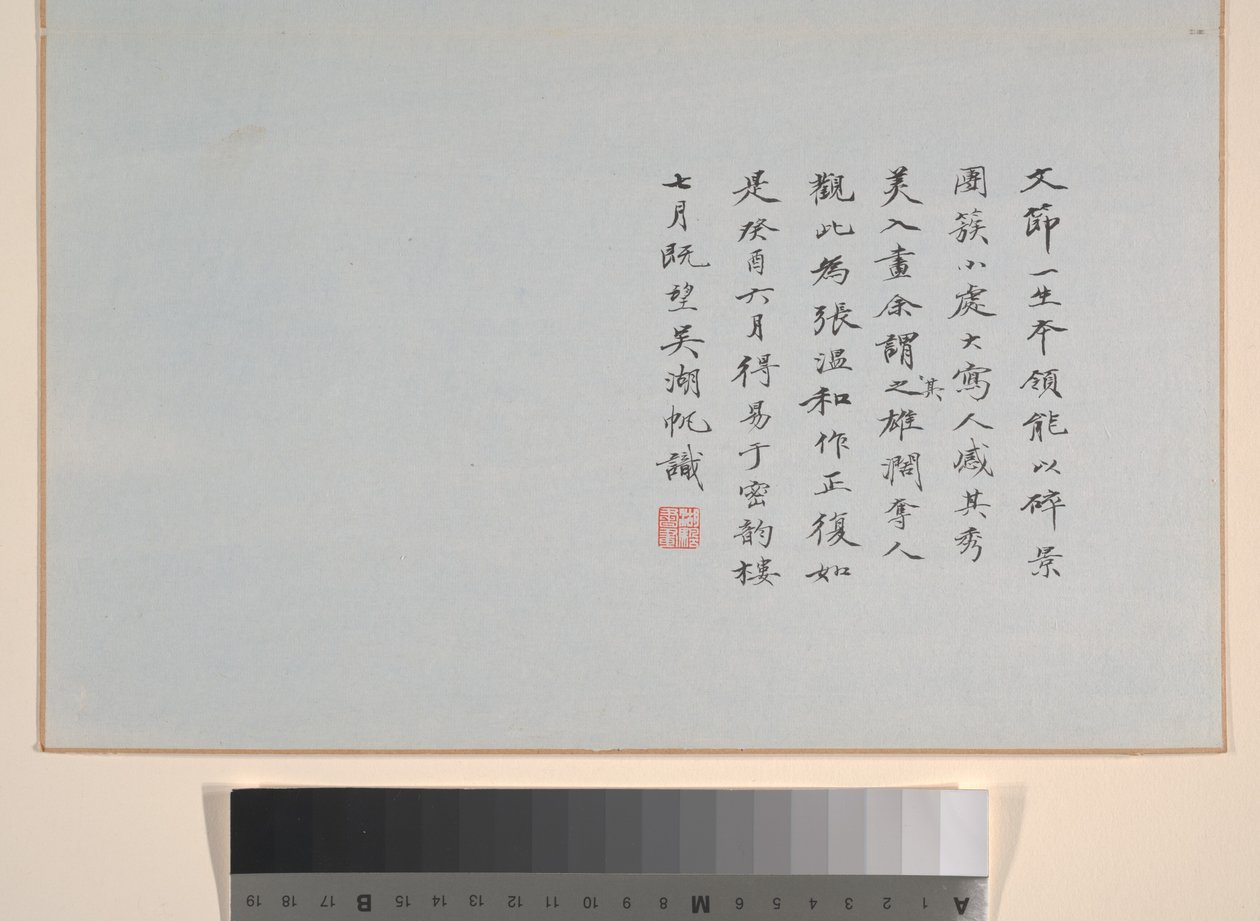 文節一生本領能以碎景
團簇小處大寫人感其秀
美入畫余謂之其雄濶奪人
觀此為張温和作正復如
是癸酉六月得易于密韵樓
七月既望吴湖帆識
湖颿書畫
A 1 2 3 4 5 6 M 8 9 10 11 12 13 14 15 B 17 18 19